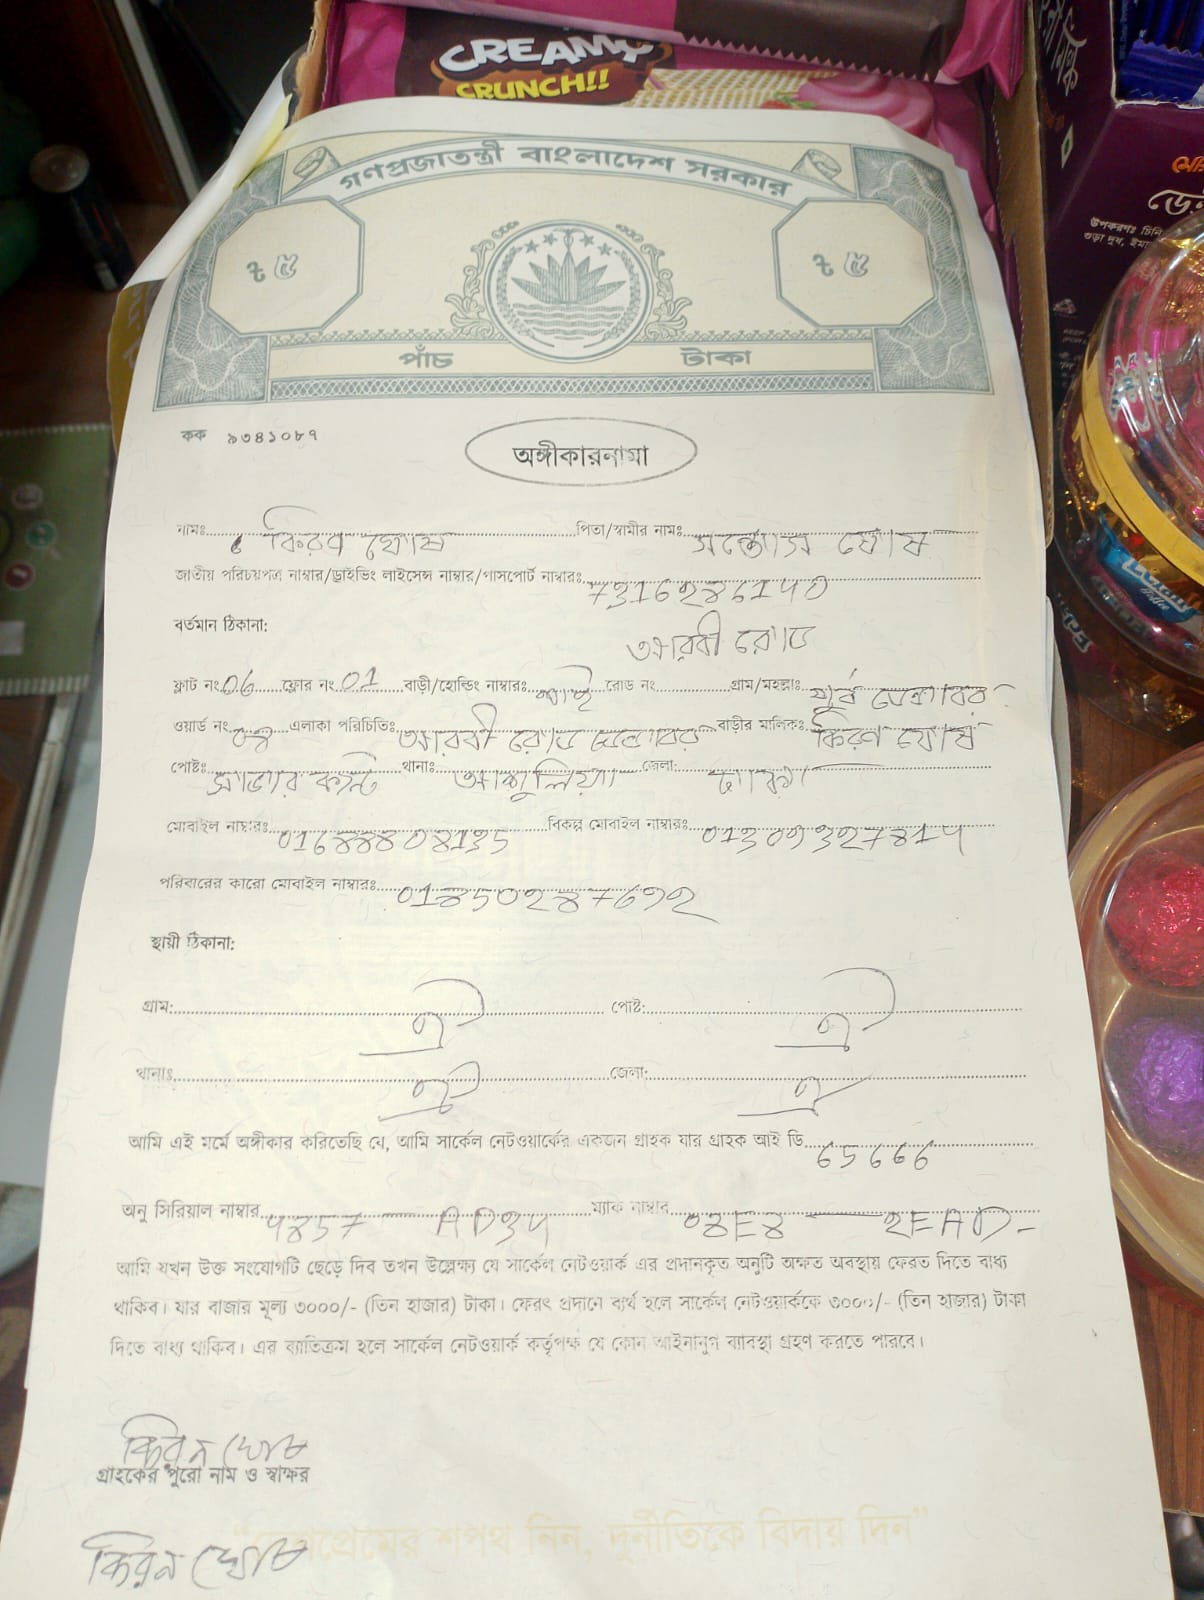 CREAMY
CRUNCH!!
গণপ্রজাতন্ত্রী বাংলাদেশ সরকার
৳ ৫ ৳ ৫
পাঁচ টাকা
কক ৯৩৪১০৮৭
অঙ্গীকারনামা
নামঃ কিরণ ঘোষ পিতা/স্বামীর নামঃ সন্তোস ঘোষ
জাতীয় পরিচয়পত্র নাম্বার/ড্রাইভিং লাইসেন্স নাম্বার/পাসপোর্ট নাম্বারঃ
বর্তমান ঠিকানা: আরবী রোড
ফ্লাট নং 06 ফ্লোর নং 01 বাড়ী/হোল্ডিং নাম্বারঃ নাই রোড নং গ্রাম/মহল্লাঃ পূর্ব
ওয়ার্ড নং এলাকা পরিচিতিঃ আরবী রোড বাড়ীর মালিকঃ কিরণ ঘোষ
পোষ্টঃ সাভার ক্যান্ট থানাঃ আশুলিয়া জেলা: ঢাকা
মোবাইল নাম্বারঃ বিকল্প মোবাইল নাম্বারঃ
পরিবারের কারো মোবাইল নাম্বারঃ
স্থায়ী ঠিকানা:
গ্রাম: ঐ পোষ্ট: ঐ
থানাঃ ঐ জেলা: ঐ
আমি এই মর্মে অঙ্গীকার করিতেছি যে, আমি সার্কেল নেটওয়ার্কের একজন গ্রাহক যার গ্রাহক আই ডি 65666
অনু সিরিয়াল নাম্বার ম্যাক নাম্বার
আমি যখন উক্ত সংযোগটি ছেড়ে দিব তখন উল্লেক্ষ্য যে সার্কেল নেটওয়ার্ক এর প্রদানকৃত অনুটি অক্ষত অবস্থায় ফেরত দিতে বাধ্য
থাকিব। যার বাজার মূল্য ৩০০০/- (তিন হাজার) টাকা। ফেরৎ প্রদানে ব্যর্থ হলে সার্কেল নেটওয়ার্ককে ৩০০০/- (তিন হাজার) টাকা
দিতে বাধ্য থাকিব। এর ব্যতিক্রম হলে সার্কেল নেটওয়ার্ক কর্তৃপক্ষ যে কোন আইনানুগ ব্যাবস্থা গ্রহণ করতে পারবে।
কিরন ঘোষ
গ্রাহকের পুরো নাম ও স্বাক্ষর
কিরন ঘোষ
শপথ নিন, দুর্নীতিকে বিদায় দিন”